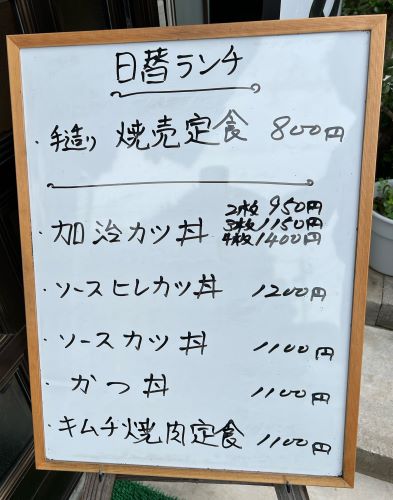 日替ランチ
・手造り 焼売定食 800円
・加治カツ丼 2枚 950円
3枚 1150円
4枚 1400円
・ソースヒレカツ丼 1200円
・ソースカツ丼 1100円
・かつ丼 1100円
・キムチ焼肉定食 1100円